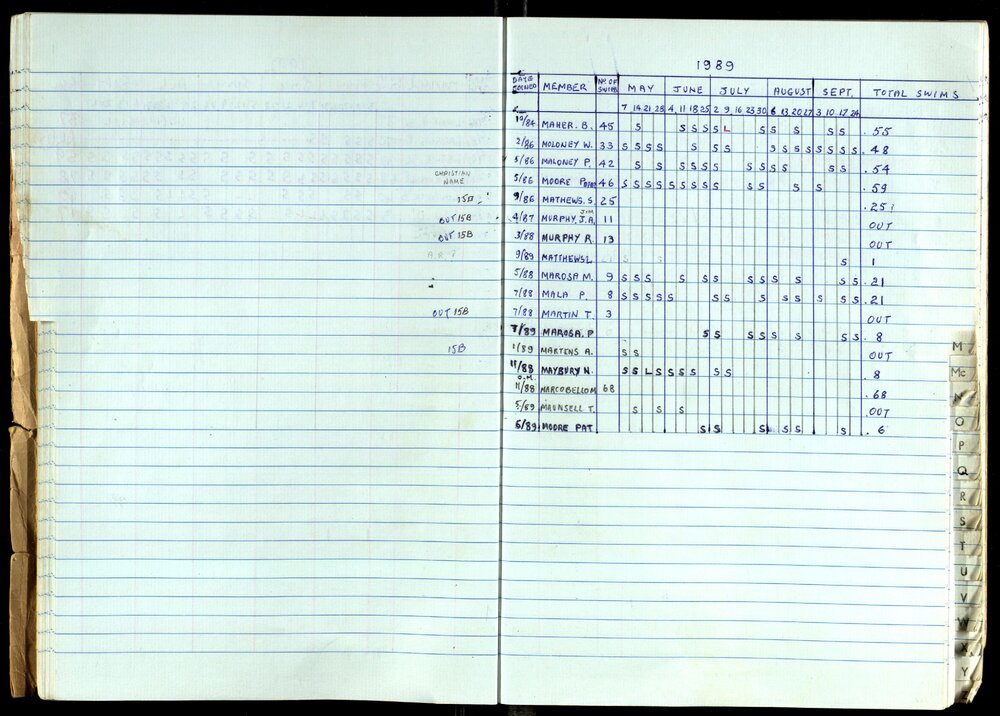 1989
DATE JOINED MEMBER No. OF SWIMS MAY JUNE JULY AUGUST SEPT. TOTAL SWIMS
7 14 21 28 4 11 18 25 2 9 16 23 30 6 13 20 27 3 10 17 24
10/84 MAHER. B. 45 S S S S S L S S S S S . 55
2/86 MOLONEY W. 33 S S S S S S S S S S S S S S S . 48
5/86 MALONEY P. 42 S S S S S S S S S S S S . 54
CHRISTIAN NAME 5/86 MOORE 46 S S S S S S S S S S S S S . 59
15B 9/86 MATHEWS. S. 25 . 25
OUT 15B 4/87 MURPHY, J.A. JIM 11 OUT
OUT 15B 3/88 MURPHY R. 13 OUT
A.R.? 9/89 MATTHEWS L. S S S 1
5/88 MAROSA M. 9 S S S S S S S S S S S S . 21
7/88 MALA P. 8 S S S S S S S S S S S S S . 21
OUT 15B 7/88 MARTIN T. 3 OUT
7/89 MAROSA. P S S S S S S S S . 8
15B 1/89 MARTENS A. S S OUT
11/88 MAYBURY N. S S L S S S S S S . 8
O.M. 11/88 MARCOBELLO M 68 . 68
5/89 MAUNSELL T. S S S OUT
6/89 MOORE PAT S S S S S S . 6
M
Mc
N
O
P
Q
R
S
T
U
V
W
X
Y